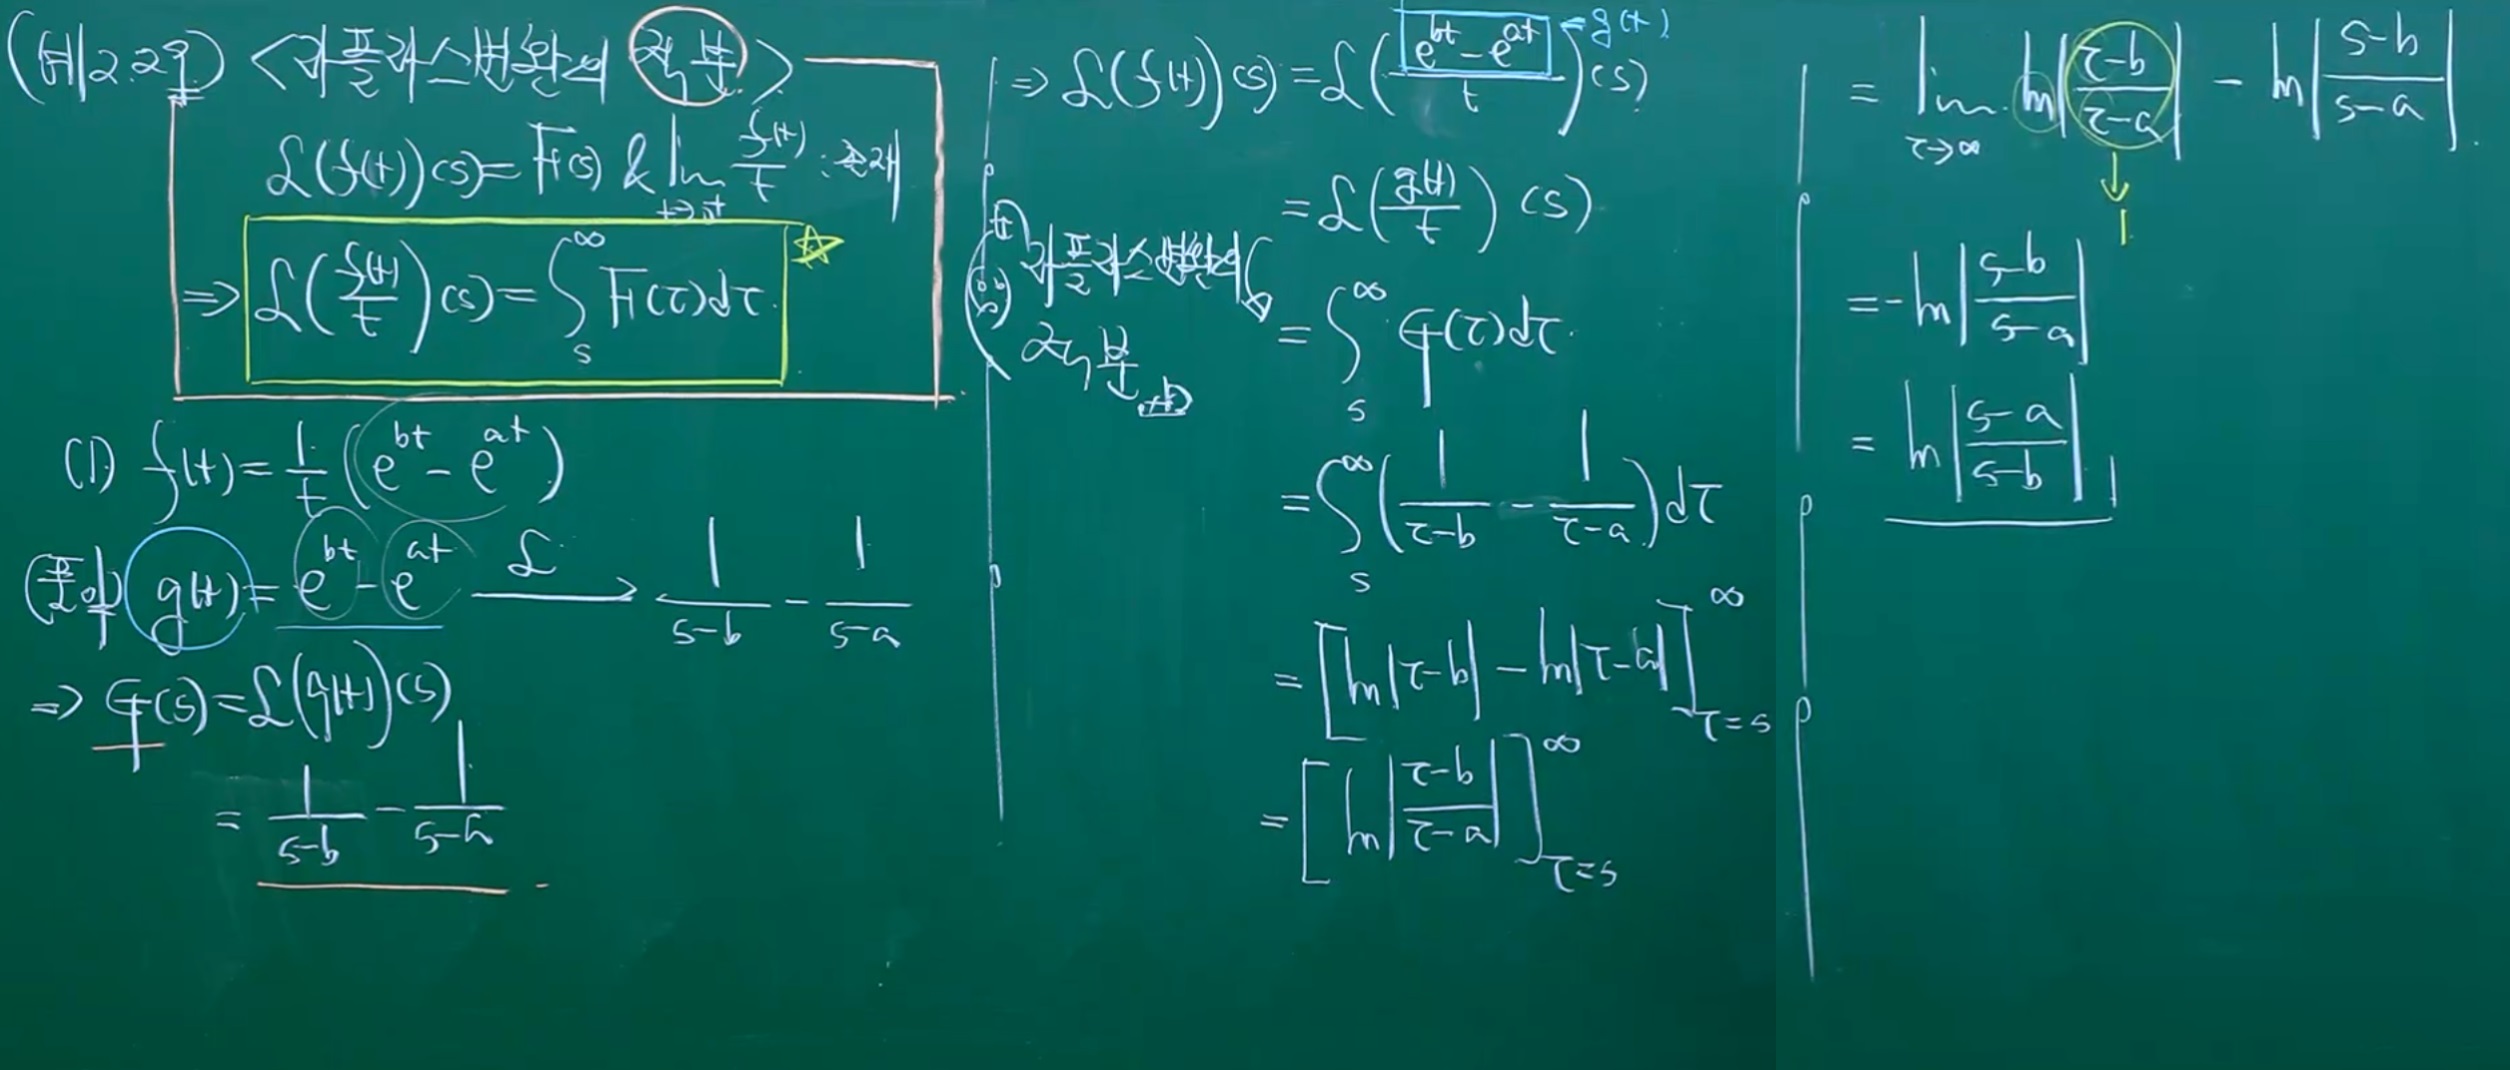 (예 2.29) <라플라스 변환의 적분>
ℒ(f(t))(s) = F(s) & lim_{t→0+} f(t)/t : 존재
⇒ ℒ(f(t)/t)(s) = ∫_s^∞ F(τ)dτ. ☆
(1) f(t) = 1/t (e^{bt} - e^{at})
(풀이) g(t) = e^{bt} - e^{at} —ℒ→ 1/(s-b) - 1/(s-a)
⇒ G(s) = ℒ(g(t))(s)
= 1/(s-b) - 1/(s-a)
⇒ ℒ(f(t))(s) = ℒ((e^{bt} - e^{at})/t)(s) ← g(t)
= ℒ(g(t)/t)(s)
(∵) 라플라스 변환의
적분
= ∫_s^∞ G(τ)dτ.
= ∫_s^∞ (1/(τ-b) - 1/(τ-a))dτ
= [ln|τ-b| - ln|τ-a|]_{τ=s}^∞
= [ln|(τ-b)/(τ-a)|]_{τ=s}^∞
= lim_{τ→∞} ln|(τ-b)/(τ-a)| - ln|(s-b)/(s-a)|.
↓
1
= -ln|(s-b)/(s-a)|
= ln|(s-a)/(s-b)|